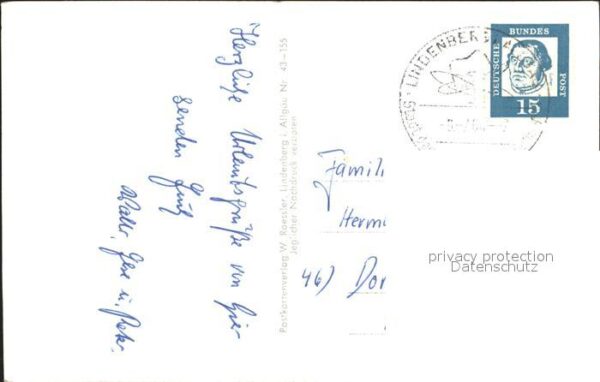 Herzliche Urlaubsgrüße von hier
senden Euch
Walter, u. Peter
Postkartenverlag W. Roessler, Lindenberg i. Allgäu Nr. 43-155
Jeglicher Nachdruck verboten
LINDENBERG
DEUTSCHE
BUNDES
POST
15
Famili
Herm
46) Dor
privacy protection
Datenschutz